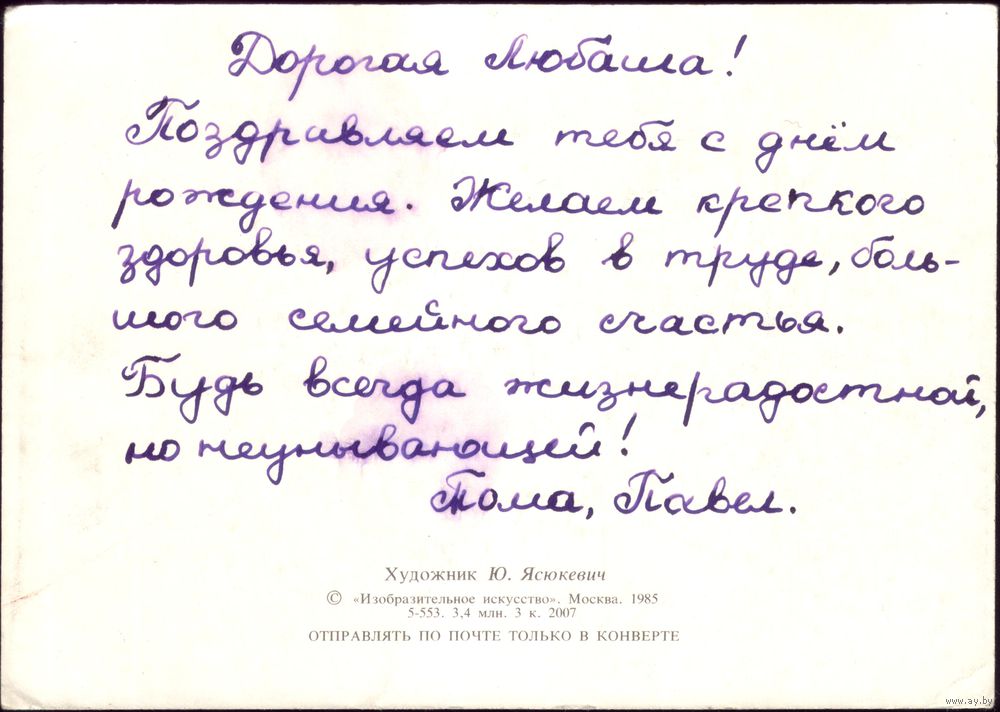 Дорогая Любаша!
Поздравляем тебя с днём
рождения. Желаем крепкого
здоровья, успехов в труде, боль-
шого семейного счастья.
Будь всегда жизнерадостной,
но неунывающей!
Тома, Павел.
Художник Ю. Ясюкевич
© «Изобразительное искусство». Москва. 1985
5-553. 3,4 млн. 3 к. 2007
ОТПРАВЛЯТЬ ПО ПОЧТЕ ТОЛЬКО В КОНВЕРТЕ
www.ay.by